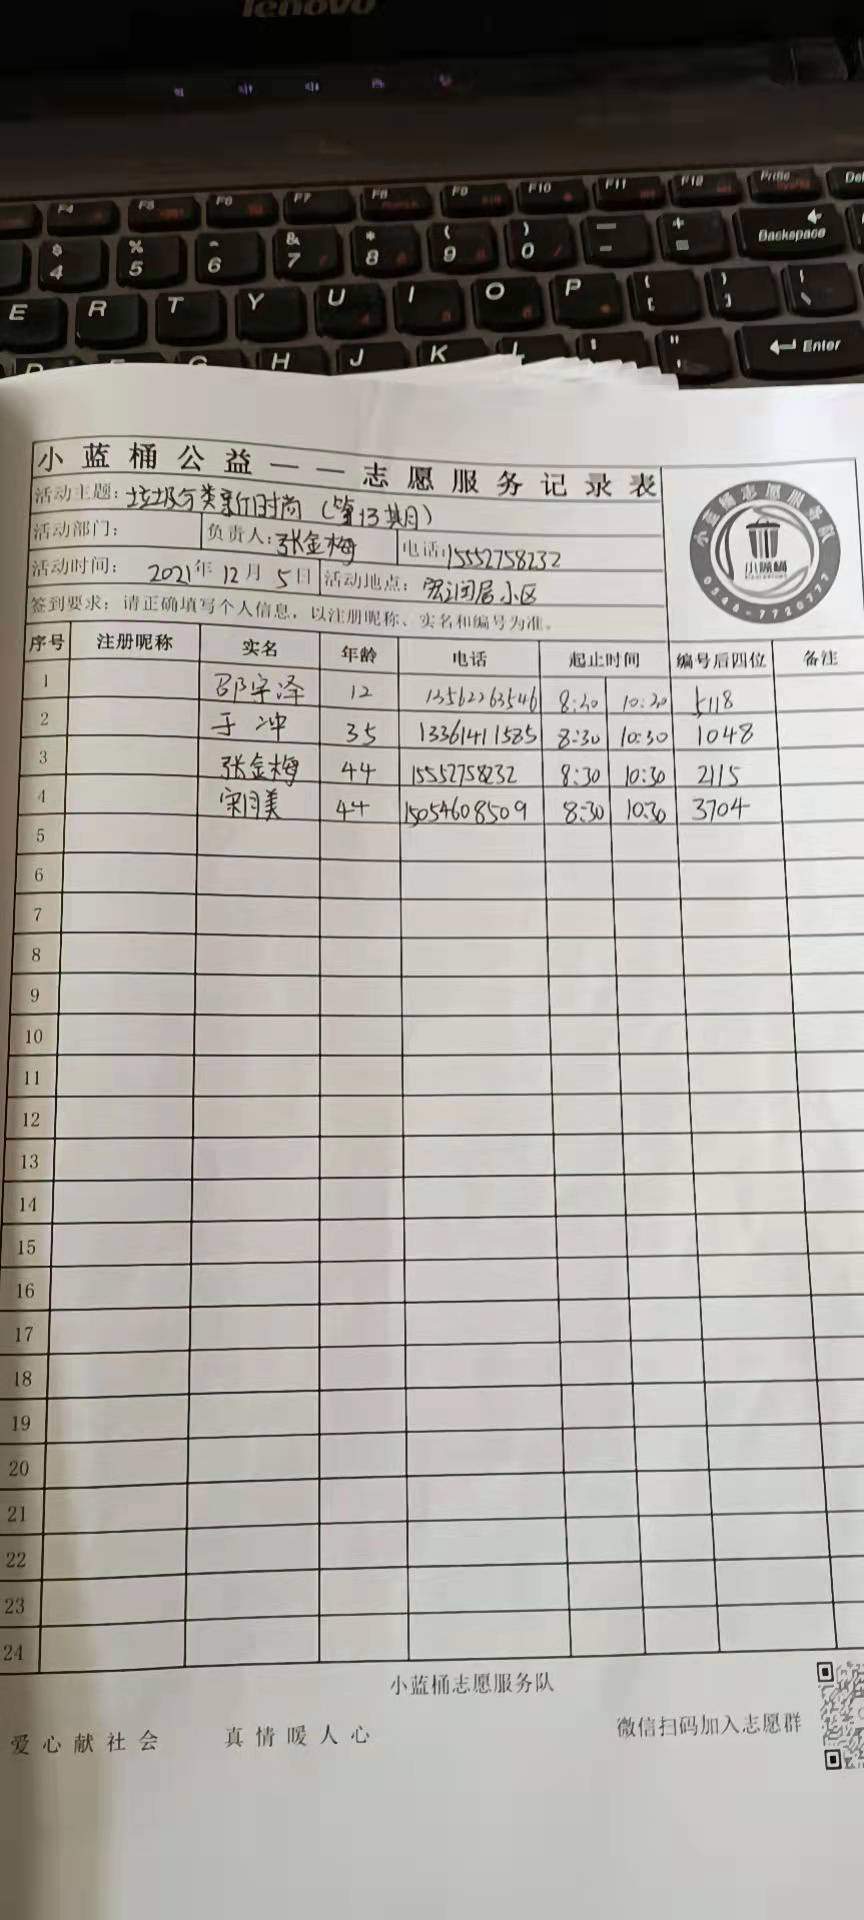 lenovo
F4 F5 F6 F7 F8 F9 F10 F11 F12 PrtSc Del
$ 4 % 5 ^ 6 & 7 * 8 ( 9 ) 0 — - + = Backspace
E R T Y U I O P { [ } ] | \
D F G H J K L : ; " ' Enter
小蓝桶公益——志愿服务记录表
活动主题：垃圾分类新时尚（第13期）
活动部门： 负责人：张金梅 电话：15552758232
活动时间： 2021年12月5日 活动地点：宏润居小区
签到要求：请正确填写个人信息，以注册昵称、实名和编号为准。
小蓝桶志愿服务队
小蓝桶
0546-7720777
序号 注册昵称 实名 年龄 电话 起止时间 编号后四位 备注
1 邵宇泽 12 13562263546 8:30 10:30 5118
2 于冲 35 13361411585 8:30 10:30 1048
3 张金梅 44 15552758232 8:30 10:30 2115
4 宋月美 44 15054608509 8:30 10:30 3704
5
6
7
8
9
10
11
12
13
14
15
16
17
18
19
20
21
22
23
24
小蓝桶志愿服务队
爱心献社会 真情暖人心 微信扫码加入志愿群